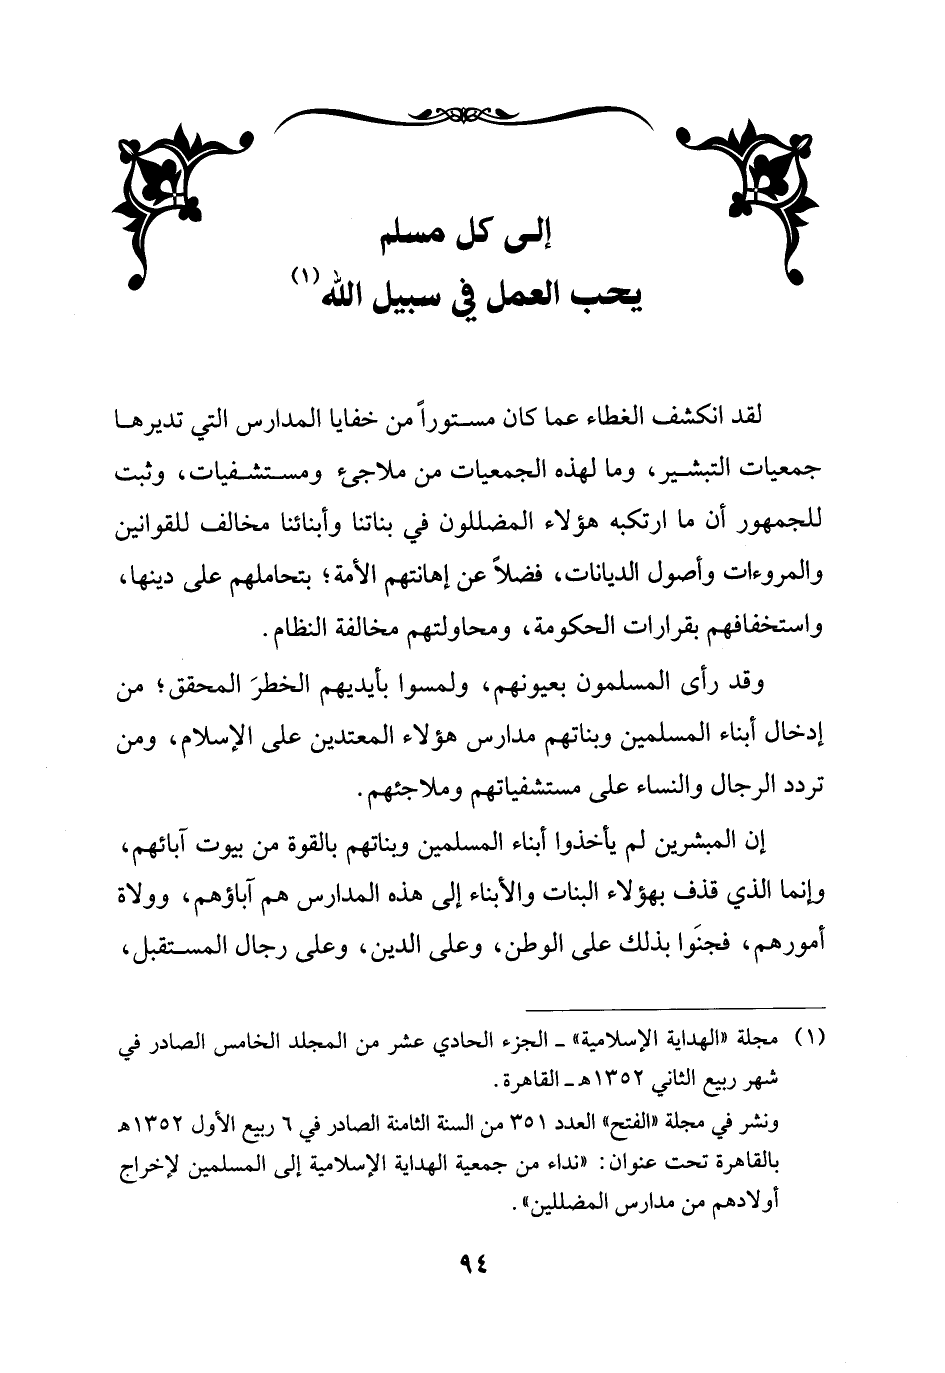 إلى كل مسلم
يحب العمل في سبيل الله(١)
لقد انكشف الغطاء عما كان مستوراً من خفايا المدارس التي تديرها
جمعيات التبشير، وما لهذه الجمعيات من ملاجىء ومستشفيات، وثبت
للجمهور أن ما ارتكبه هؤلاء المضللون في بناتنا وأبنائنا مخالف للقوانين
والمروءات وأصول الديانات، فضلاً عن إهانتهم الأمة؛ بتحاملهم على دينها،
واستخفافهم بقرارات الحكومة، ومحاولتهم مخالفة النظام.
وقد رأى المسلمون بعيونهم، ولمسوا بأيديهم الخطرَ المحقق؛ من
إدخال أبناء المسلمين وبناتهم مدارس هؤلاء المعتدين على الإسلام، ومن
تردد الرجال والنساء على مستشفياتهم وملاجئهم.
إن المبشرين لم يأخذوا أبناء المسلمين وبناتهم بالقوة من بيوت آبائهم،
وإنما الذي قذف بهؤلاء البنات والأبناء إلى هذه المدارس هم آباؤهم، وولاة
أمورهم، فجنَوا بذلك على الوطن، وعلى الدين، وعلى رجال المستقبل،
(١) مجلة «الهداية الإسلامية» ـ الجزء الحادي عشر من المجلد الخامس الصادر في
شهر ربيع الثاني ١٣٥٢هـ ـ القاهرة.
ونشر في مجلة «الفتح» العدد ٣٥١ من السنة الثامنة الصادر في ٦ ربيع الأول ١٣٥٢هـ
بالقاهرة تحت عنوان: «نداء من جمعية الهداية الإسلامية إلى المسلمين لإخراج
أولادهم من مدارس المضللين».
٩٤